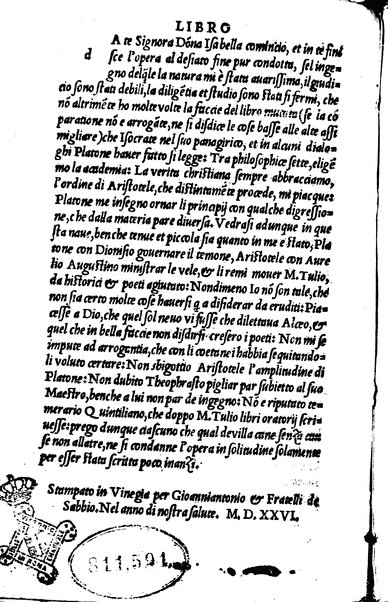 LIBRO
A te Signora Dõna Isabella comincio, et in te fini
d sce l'opera al desiato fine pur condotta, sel inge-
gno delq̃le la natura mi è stata auarissima, il giudi-
cio sono stati debili, la diligẽtia et studio sono stati si fermi, che
nõ altrimẽte ho molte volte la faccie del libro mutata (se la cõ
paratione nõ e arrogãte, ne si disdice le cose basse alle alte assi
migliare) che Isocrate nel suo panagirico, et in alcuni dialo-
ghi Platone hauer fatto si legge: Tra philosophice sette, eligẽ
mo la academia: La verita christiana sempre abbracciamo,
l'ordine di Aristotele, che distintamẽte procede, mi piacque:
Platone me insegno ornar li principij con qualche digressio-
ne, che dalla materia pare diuersa. Vedrasi adunque in que
sta naue, ben che tenue et piccola sia quanto in me e stato, Pla
tone con Dionisio gouernare il temone, Aristotele con Aure
lio Augustino ministrar le vele, & li remi mouer M. Tulio,
da historici & poeti agiutato: Nondimeno Io nõ son tale, che
non sia certo molte cose hauersi q̃ a disiderar da eruditi: Pia-
cesse a Dio, che quel sol neuo vi fusse che dilettaua Alceo, &
quel che in bella faccie non disdirsi cresero i poeti: Non mi se
impute ad arrogentia, che con li coetanei habbia sequitando-
li voluto certare: Non sbigottio Aristotele l'amplitudine di
Platone: Non dubito Theophrasto pigliar par subietto al suo
Maestro, benche a lui non par de ingegno: Nõ e riputato te-
merario Quintiliano, che doppo M. Tulio libri oratorij scri-
uesse: prego dunque ciascuno che qual de villa cane senza cau
se non allatre, ne si condanne l'opera in solitudine solamente
per esser stata scritta poco inanzi.
Stampato in Vinegia per Gioanniantonio & Fratelli de
Sabbio. Nel anno di nostra salute. M. D. XXVI.
811.591